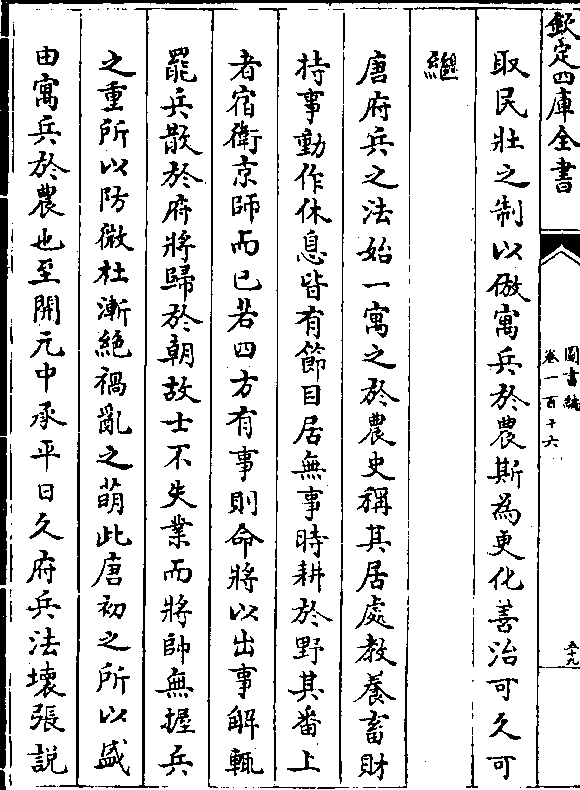 欽定四庫全書
圖書編
卷一百十六
五十九
取民壯之制以倣寓兵於農斯為更化善治可久可
繼
唐府兵之法始一寓之於農史稱其居處教養畜財
待事動作休息皆有節目居無事時耕於野其番上
者宿衛京師而已若四方有事則命將以出事解輒
罷兵散於府將歸於朝故士不失業而將帥無握兵
之重所以防微杜漸絕禍亂之萌此唐初之所以盛
由寓兵於農也至開元中承平日久府兵法壞張說